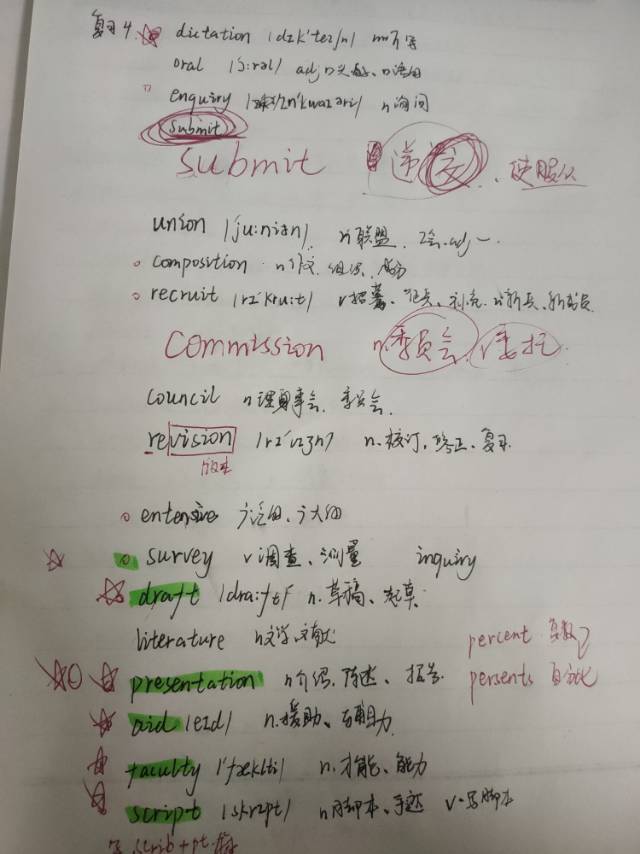 复习4. dictation /dɪk'teɪʃn/ n听写
oral /ɔ:rəl/ adj 口头的、n口语的
enquiry n询问
submit
submit 递交、使服从
union /ju:niən/ n联盟、工会、adj一
composition n作文、组织、成分
recruit /rɪ'kru:t/ v招募、征兵、补充 n新兵、新成员
commission n委员会、v委托
council n理事会、委员会
revision /rɪ'vɪʒn/ n.校订、修正、复习
extensive 广泛的、广大的
survey v调查、测量 inquiry
draft /dra:ft/ n.草稿、起草
literature n文学、文献
percent
presentation n介绍、陈述、报告 persents 百分比
aid /eɪd/ n.援助、辅助力
faculty /'fæklti/ n.才能、能力
script /skrɪpt/ n脚本、手迹 v.写脚本
写 scrib+pt